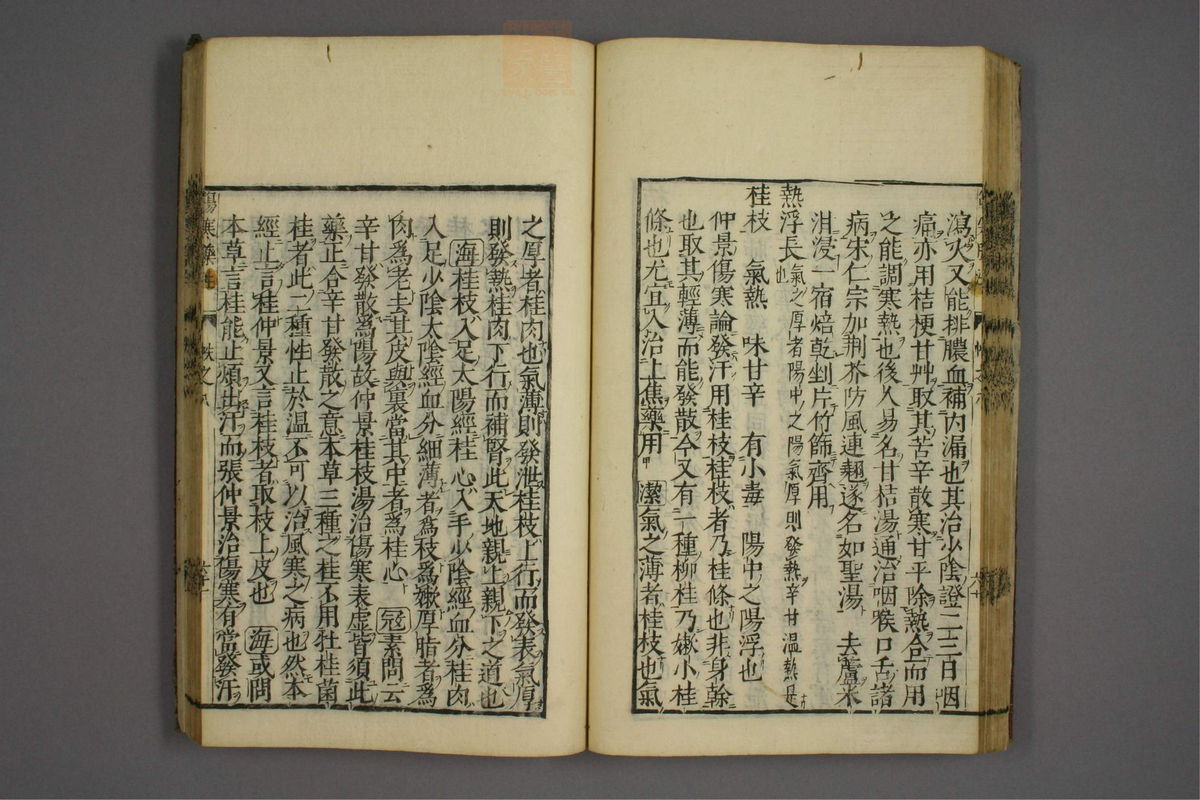 瀉火又能排膿血補内漏也其治少陰證二三日咽
痛亦用桔梗甘艸取其苦辛散寒甘平除熱合而用
之能調寒熱也後人易名甘桔湯通治咽喉口舌諸
病宋仁宗加荆芥防風連翹遂名如聖湯　去蘆米
泔浸一宿焙乾剉片竹篩齊用
氣之厚者陽中之陽氣厚則發熱辛甘温熱是
也
熱浮長
桂枝　氣熱　味甘辛　有小毒　陽中之陽浮也
仲景傷寒論發汗用桂枝桂枝者乃桂條也非身幹
也取其輕薄而能發散今又有一種柳桂乃嫩小桂
條也尤宜入治上焦藥用　潔氣之薄者桂枝也氣
之厚者桂肉也氣薄則發泄桂枝上行而發表氣厚
則發熱桂肉下行而補腎此天地親上親下之道也
海桂枝入足太陽經桂心入手少陰經血分桂肉
入足少陰太陰經血分細薄者爲枝爲嫩厚脂者爲
肉爲老去其皮與裏當其中者爲桂心　冦素問云
辛甘發散爲陽故仲景桂枝湯治傷寒表虚皆須此
藥正合辛甘發散之意本草三種之桂不用牡桂菌
桂者此二種性止於温不可以治風寒之病也然本
經止言桂仲景又言桂枝者取枝上皮也　海或問
本草言桂能止煩出汗而張仲景治傷寒有當發汗
傷寒藥性